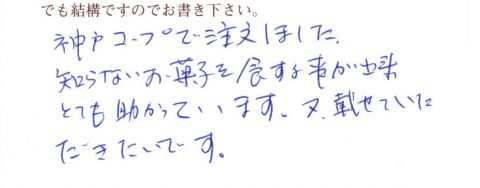 でも結構ですのでお書き下さい。
神戸コープで注文しました。
知らないお菓子を食する事が出来
とても助かっています。又、載せていた
だきたいです。